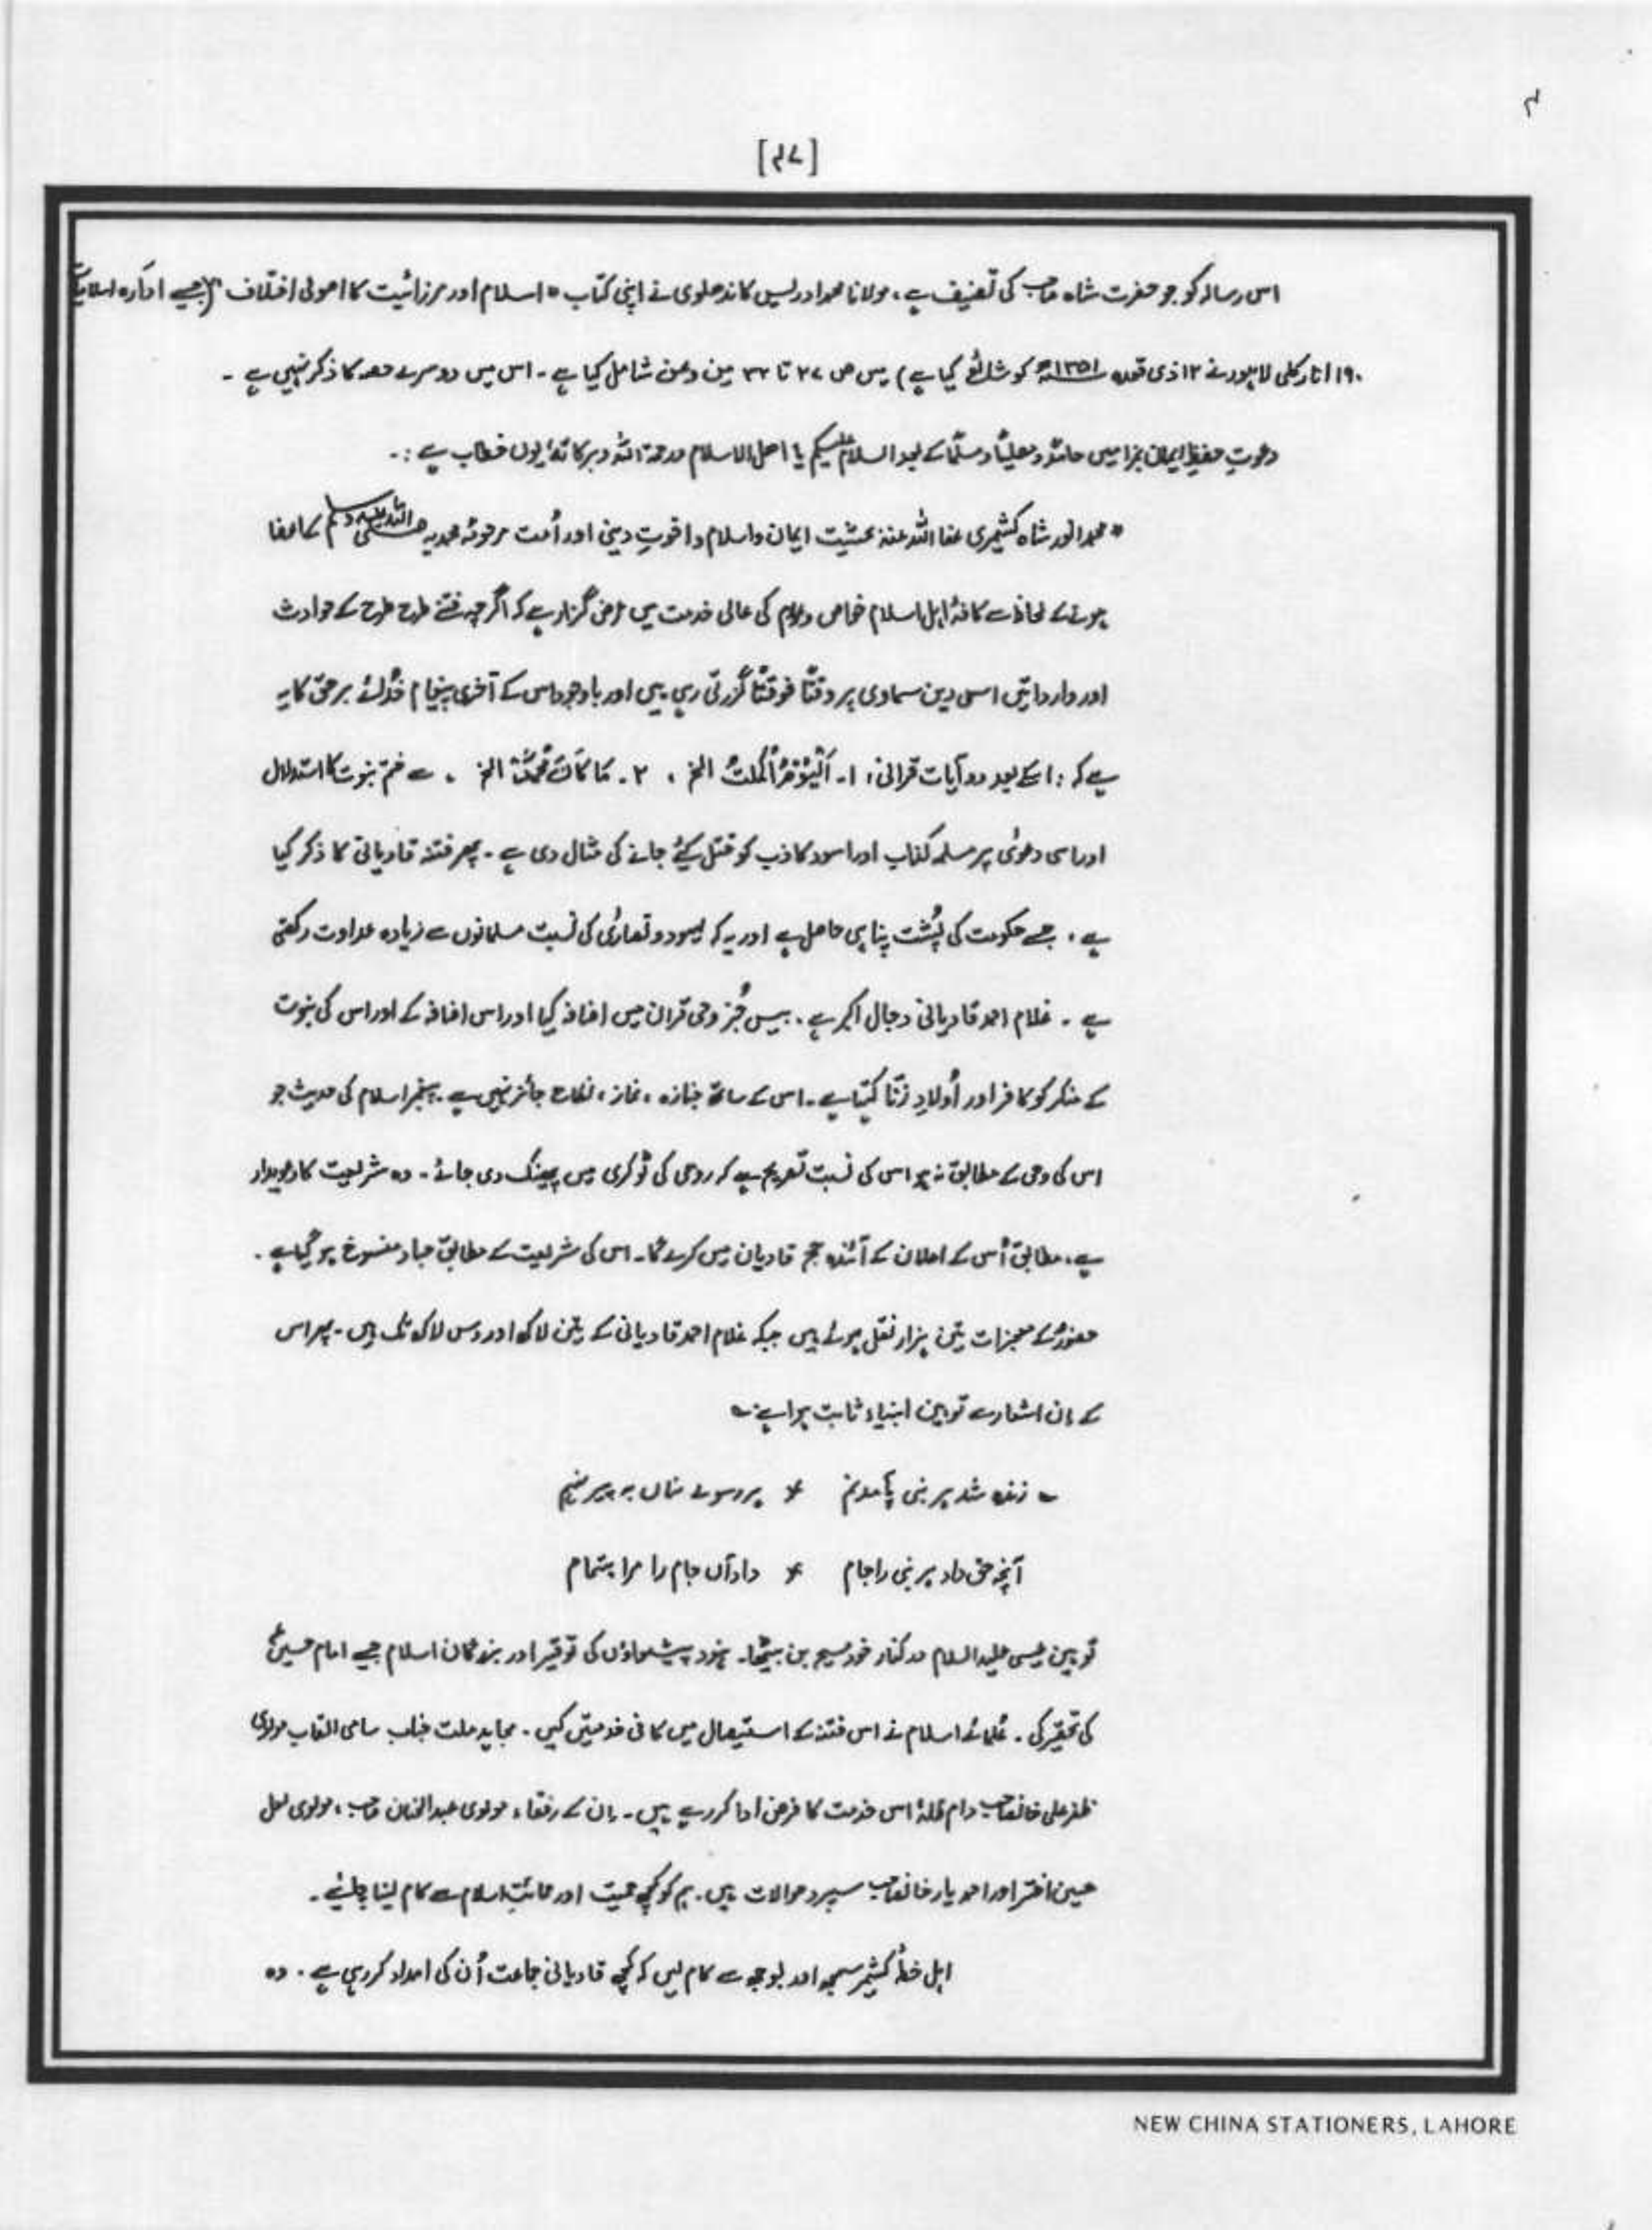 [۴۷]
اس رسالہ کو جو حضرت شاہ صاحب کی تصنیف ہے، مولانا محمد ادریس کاندھلوی نے اپنی کتاب "اسلام اور مرزائیت کا اصولی اختلاف" (جسے ادارہ اسلامیات
۱۹۰ انارکلی لاہور نے ۱۲ ذی قعدہ ۱۳۵۱ھ کو شائع کیا ہے) میں ص ۲۷ تا ۳۲ من وعن شامل کیا ہے - اس میں دوسرے حصہ کا ذکر نہیں ہے -
دعوتِ حفظِ ایمان ہٰذا میں حامدًا ومصلیًا ومسلّمًا کے بعد السلام علیکم یا اھل الاسلام ورحمۃ اللہ وبرکاتہٗ یوں خطاب ہے :-
" محمد انور شاہ کشمیری عفا اللہ عنہ بحیثیت ایمان واسلام واخوتِ دینی اور اُمت مرحومہ محمدیہ صلی اللہ علیہ وسلم کے اعضا
ہونے کے لحاظ سے کافۂ اہل اسلام خواص وعوام کی عالی خدمت میں عرض گزار ہے کہ اگرچہ فتنے طرح طرح کے حوادث
اور وارداتیں اس دین سماوی پر وقتًا فوقتًا گزرتی رہی ہیں اور باوجود اس کے آخری پیغام خدائے برحق کا یہ
ہے کہ : اسکے بعد دو آیات قرآنی : ۱- اَلْیَوْمَ اَکْمَلْتُ الخ ، ۲- مَا کَانَ مُحَمَّدٌ الخ ، سے ختم نبوت کا استدلال
اور اسی دعوٰی پر مسلمہ کذاب اور اسود کاذب کو قتل کئے جانے کی مثال دی ہے - پھر فتنۂ قادیانی کا ذکر کیا
ہے ، جسے حکومت کی پُشت پناہی حاصل ہے اور یہ کہ یہود و نصاریٰ کی نسبت مسلمانوں سے زیادہ عداوت رکھتی
ہے - غلام احمد قادیانی دجال اکبر ہے . بیس جُز وحی قرآن میں اضافہ کیا اور اس اضافہ کے اور اس کی نبوت
کے منکر کو کافر اور اُولادِ زنا کہتا ہے - اس کے ساتھ جنازہ ، نماز ، نکاح جائز نہیں ہے - پیغمبر اسلام کی حدیث جو
اس کی وحی کے مطابق نہ ہو اس کی نسبت تصریح ہے کہ ردی کی ٹوکری میں پھینک دی جائے - وہ شریعت کا دعویدار
ہے ، مطابق اُس کے اعلان کے آئندہ حج قادیان میں کرے گا - اس کی شریعت کے مطابق جہاد منسوخ ہو گیا ہے .
حضورؐ کے معجزات تین ہزار نقل ہوئے ہیں جبکہ غلام احمد قادیانی کے تین لاکھ اور دس لاکھ تک ہیں - پھر اس
کے اِن اشعار سے توہین انبیاء ثابت ہوا ہے :
زندہ شد ہر نبی بآمدنم * ہر رسولے نہاں بہ پیرہنم
آنچہ حق داد ہر نبی را جام * داد آں جام را مرا بتمام
توہین عیسی علیہ السلام درکنار خود مسیح بن بیٹھا - ہنود پیشواؤں کی توقیر اور بزرگان اسلام جیسے امام حسینؓ
کی تحقیر کی . علمائے اسلام نے اس فتنہ کے استیصال میں کافی خدمتیں کیں . مجاہد ملت جناب سامی القاب مولوی
ظفر علی خانصاحب دام ظلہٗ اس خدمت کا فرض ادا کر رہے ہیں - اِن کے رفقاء مولوی عبدالحنان صاحب ، مولوی لعل
حسین اختر اور احمد یار خانصاحب سپرد حوالات ہیں . ہم کو کچھ حمیت اور حمایت اسلام سے کام لینا چاہئے .
اہل خطّۂ کشمیر سمجھ اور بوجھ سے کام لیں کہ کچھ قادیانی جماعت اُن کی امداد کر رہی ہے . وہ
NEW CHINA STATIONERS, LAHORE